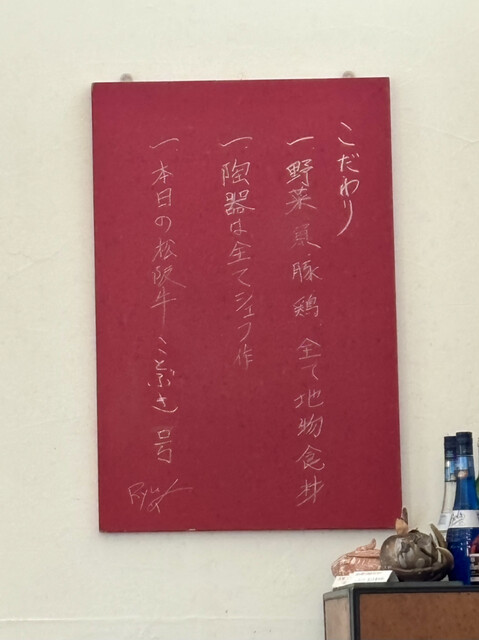 こだわり
一.野菜.魚.豚.鶏.全て地物食材
一.陶器は全てシェフ作
一.本日の松阪牛 ことぶき号